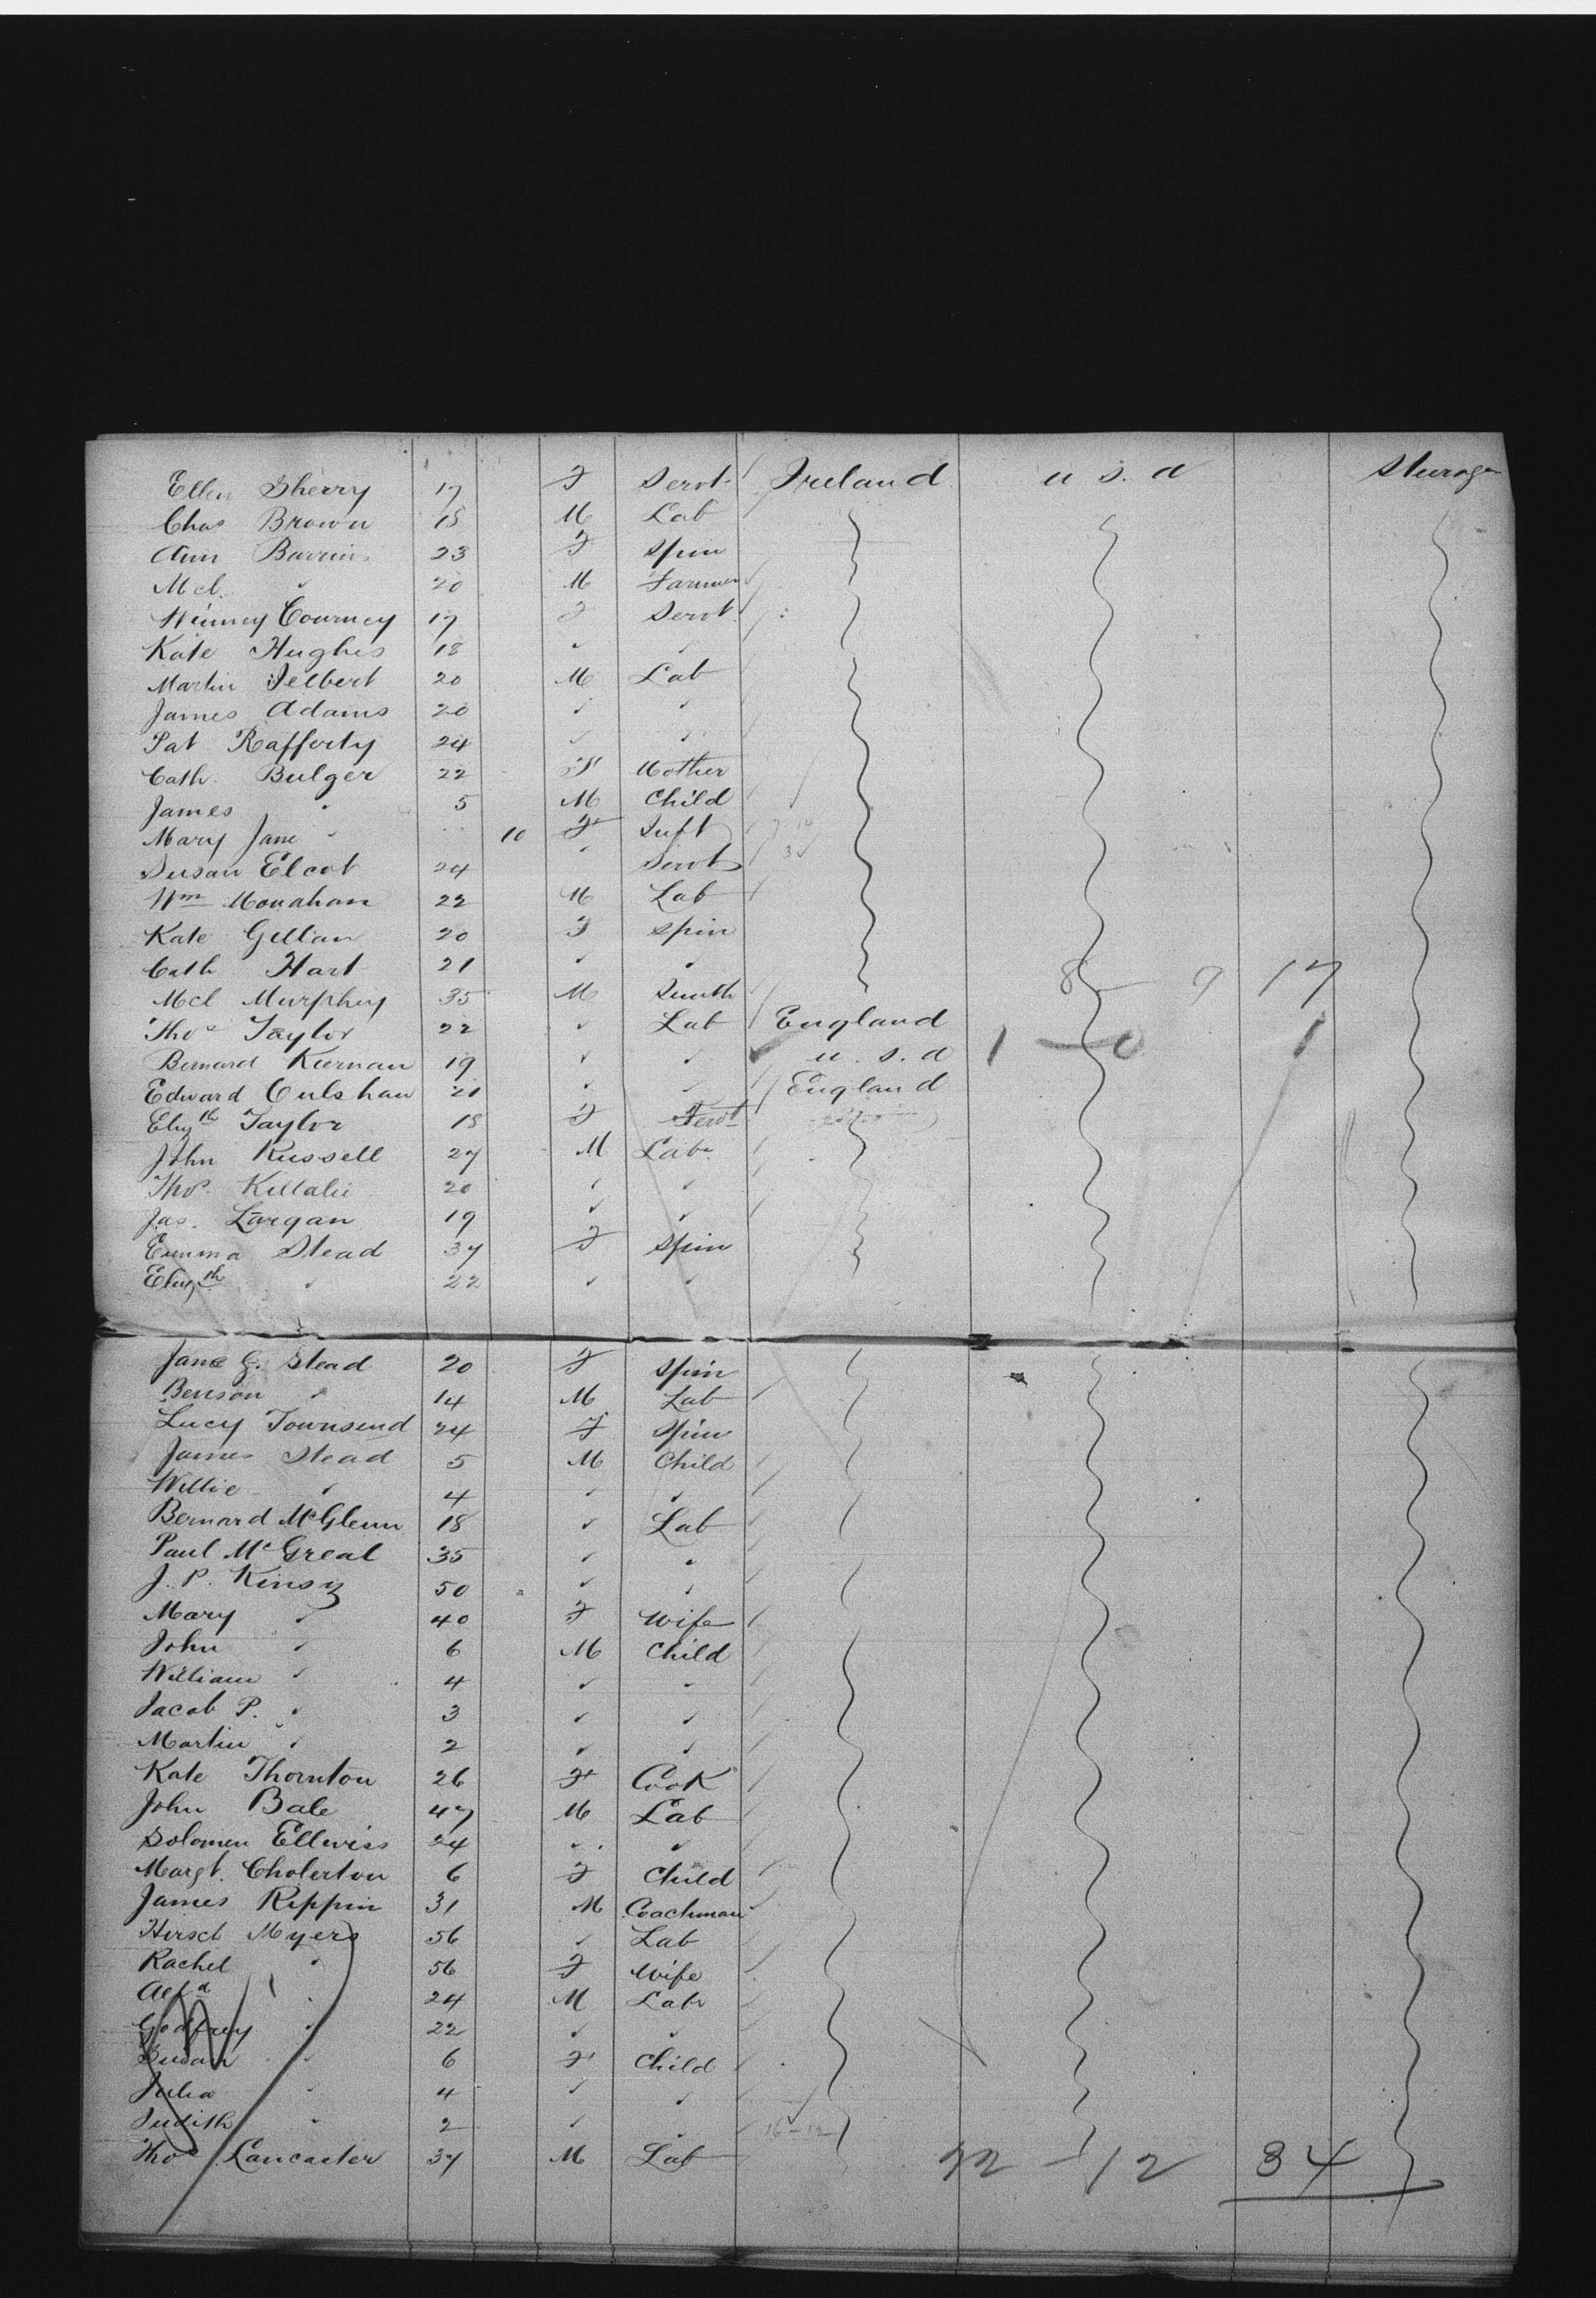 Ellen Sherry 17 F Servt Ireland U S. A Steerage
Chas Brown 18 M Lab
Ann Barrins 23 F Spin
Mcl. " 20 M Farmer
Winney Courney 17 F Servt
Kate Hughes 18 " "
Martin Jelbert 20 M Lab
James Adams 20 " "
Pat Rafferty 24 " "
Cath. Bulger 22 F Mother
James " 5 M Child
Mary Jane " 10 F Inft
Susan Elcot 24 " Servt
Wm Monahan 22 M Lab
Kate Gillan 20 F Spin
Cath Hart 21 " "
Mcl Murphy 35 M Smith 8 - 9 17
Thos Taylor 22 " Lab England
Bernard Kiernan 19 " " U. S. A 1 - 0 1
Edward Culshaw 21 " " England
Elizth Taylor 18 F Servt
John Russell 27 M Labr
Thos. Killalie 20 " "
Jas. Largan 19 " "
Emma Stead 37 F Spin
Elizth " 22 " "
Jane G. Stead 20 F Spin
Benson " 14 M Lab
Lucy Townsend 24 F Spin
James Stead 5 M Child
Willie " 4 " "
Bernard McGlenn 18 " Lab
Paul McGreal 35 " "
J. P. Kinsy 50 " "
Mary " 40 F Wife
John " 6 M Child
William " 4 " "
Jacob P. " 3 " "
Martin " 2 " "
Kate Thornton 26 F Cook
John Bale 47 M Lab
Solomen Ellwiss 24 " "
Margt. Cholerton 6 F Child
James Rippin 31 M Coachman
Hirsch Myers 56 " Lab
Rachel " 56 F Wife
Alfd " 24 M Labr
Godfrey " 22 " "
Susan " 6 F Child
Julia " 4 " "
Judith " 2 " " 16-12
Thos Lancaster 37 M Lab 22 - 12 34